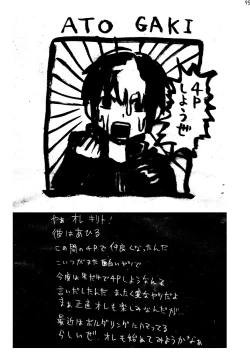 95
ATO GAKI
4P
しようぜ
やあ オレ キリト！
彼はあひる
この間の4Pで仲良くなったんだ
こいつがまた面白いやつで
今度は男だけで4Pしようなんて
言いだしたんだ まったく変なやつだよ
まぁ正直オレも楽しみなんだが
最近はボルダリングにハマってる
らしいぜ オレも始めてみようかなぁ